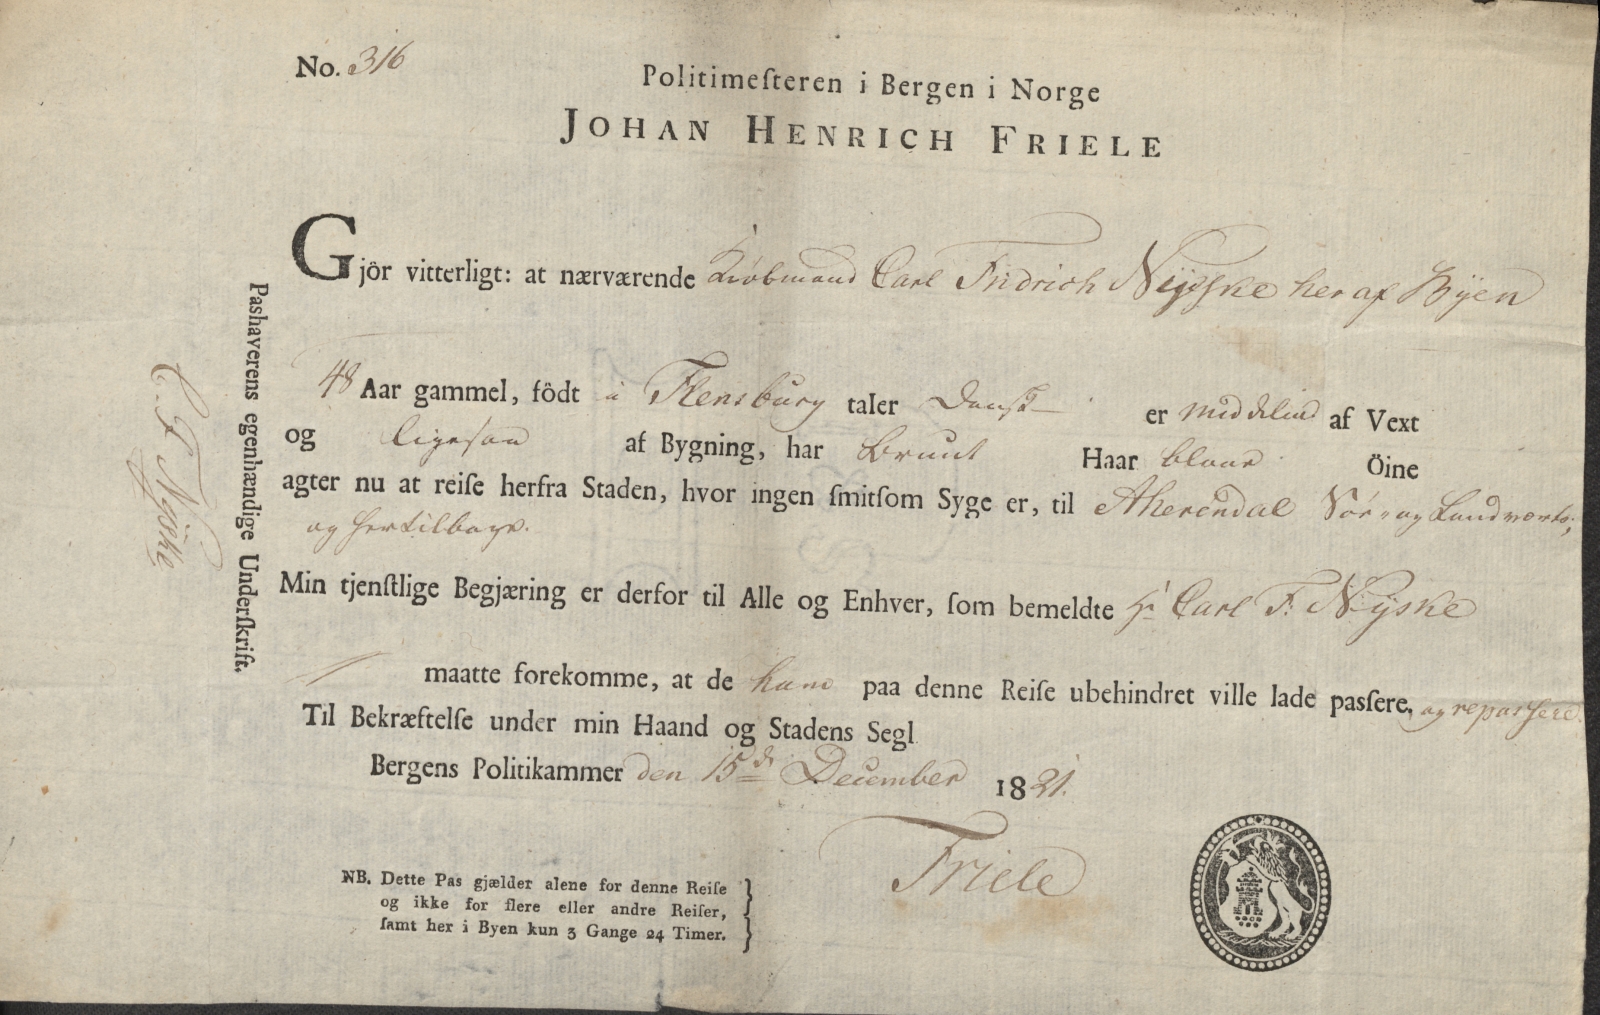 No. 316
Politimeſteren i Bergen i Norge
JOHAN HENRICH FRIELE
Gjör vitterligt: at nærværende Kiöbmand Carl Fridrich Nÿeske her af Bÿen
48 Aar gammel, födt i Flensburg taler Dansk er middelind af Vext
og ligesaa af Bygning, har Bruut Haar blaae Öine
agter nu at reiſe herfra Staden, hvor ingen ſmitſom Syge er, til Aherendal Söe- og Landværts,
og her tilbage.
Min tjenſtlige Begjæring er derfor til Alle og Enhver, ſom bemeldte Hr Carl F: Nÿske
maatte forekomme, at de ham paa denne Reiſe ubehindret ville lade paſſere, og repassere.
Til Bekræftelſe under min Haand og Stadens Segl
Bergens Politikammer den 15de December 1821.
Friele
NB. Dette Pas gjælder alene for denne Reiſe
og ikke for flere eller andre Reiſer,
ſamt her i Byen kun 3 Gange 24 Timer.
Pashaverens egenhændige Underſkrift.
C. F. Nÿske